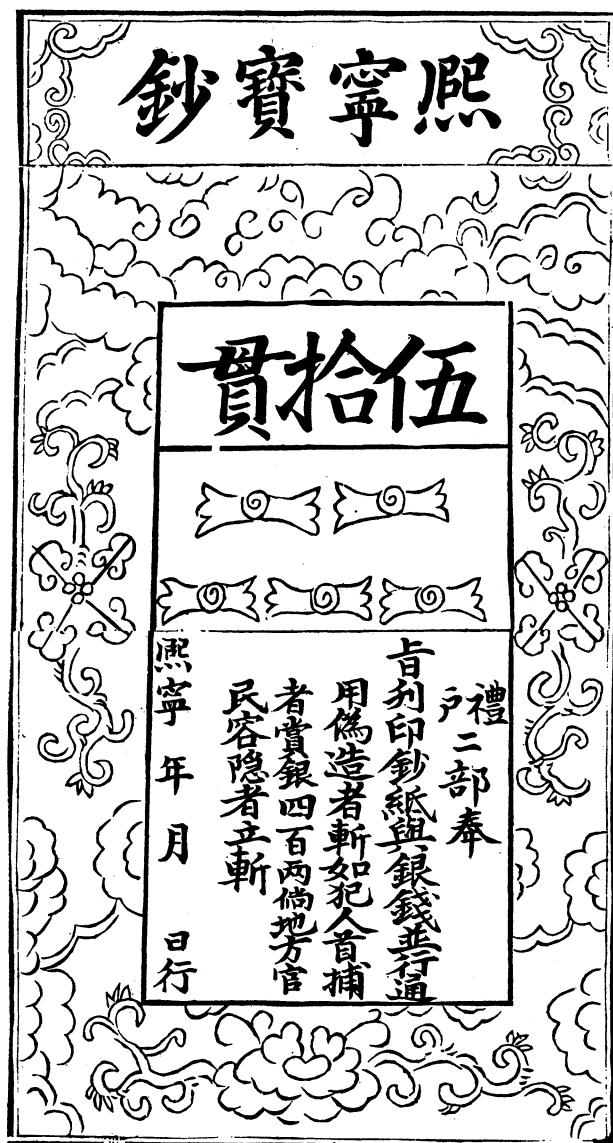 熈寧寶鈔
伍拾貫
禮戶二部奉
旨刋印鈔紙與銀錢並行通
用偽造者斬如犯人首捕
者賞銀四百两倘地方官
民容隠者立斬
熈寧年月日行